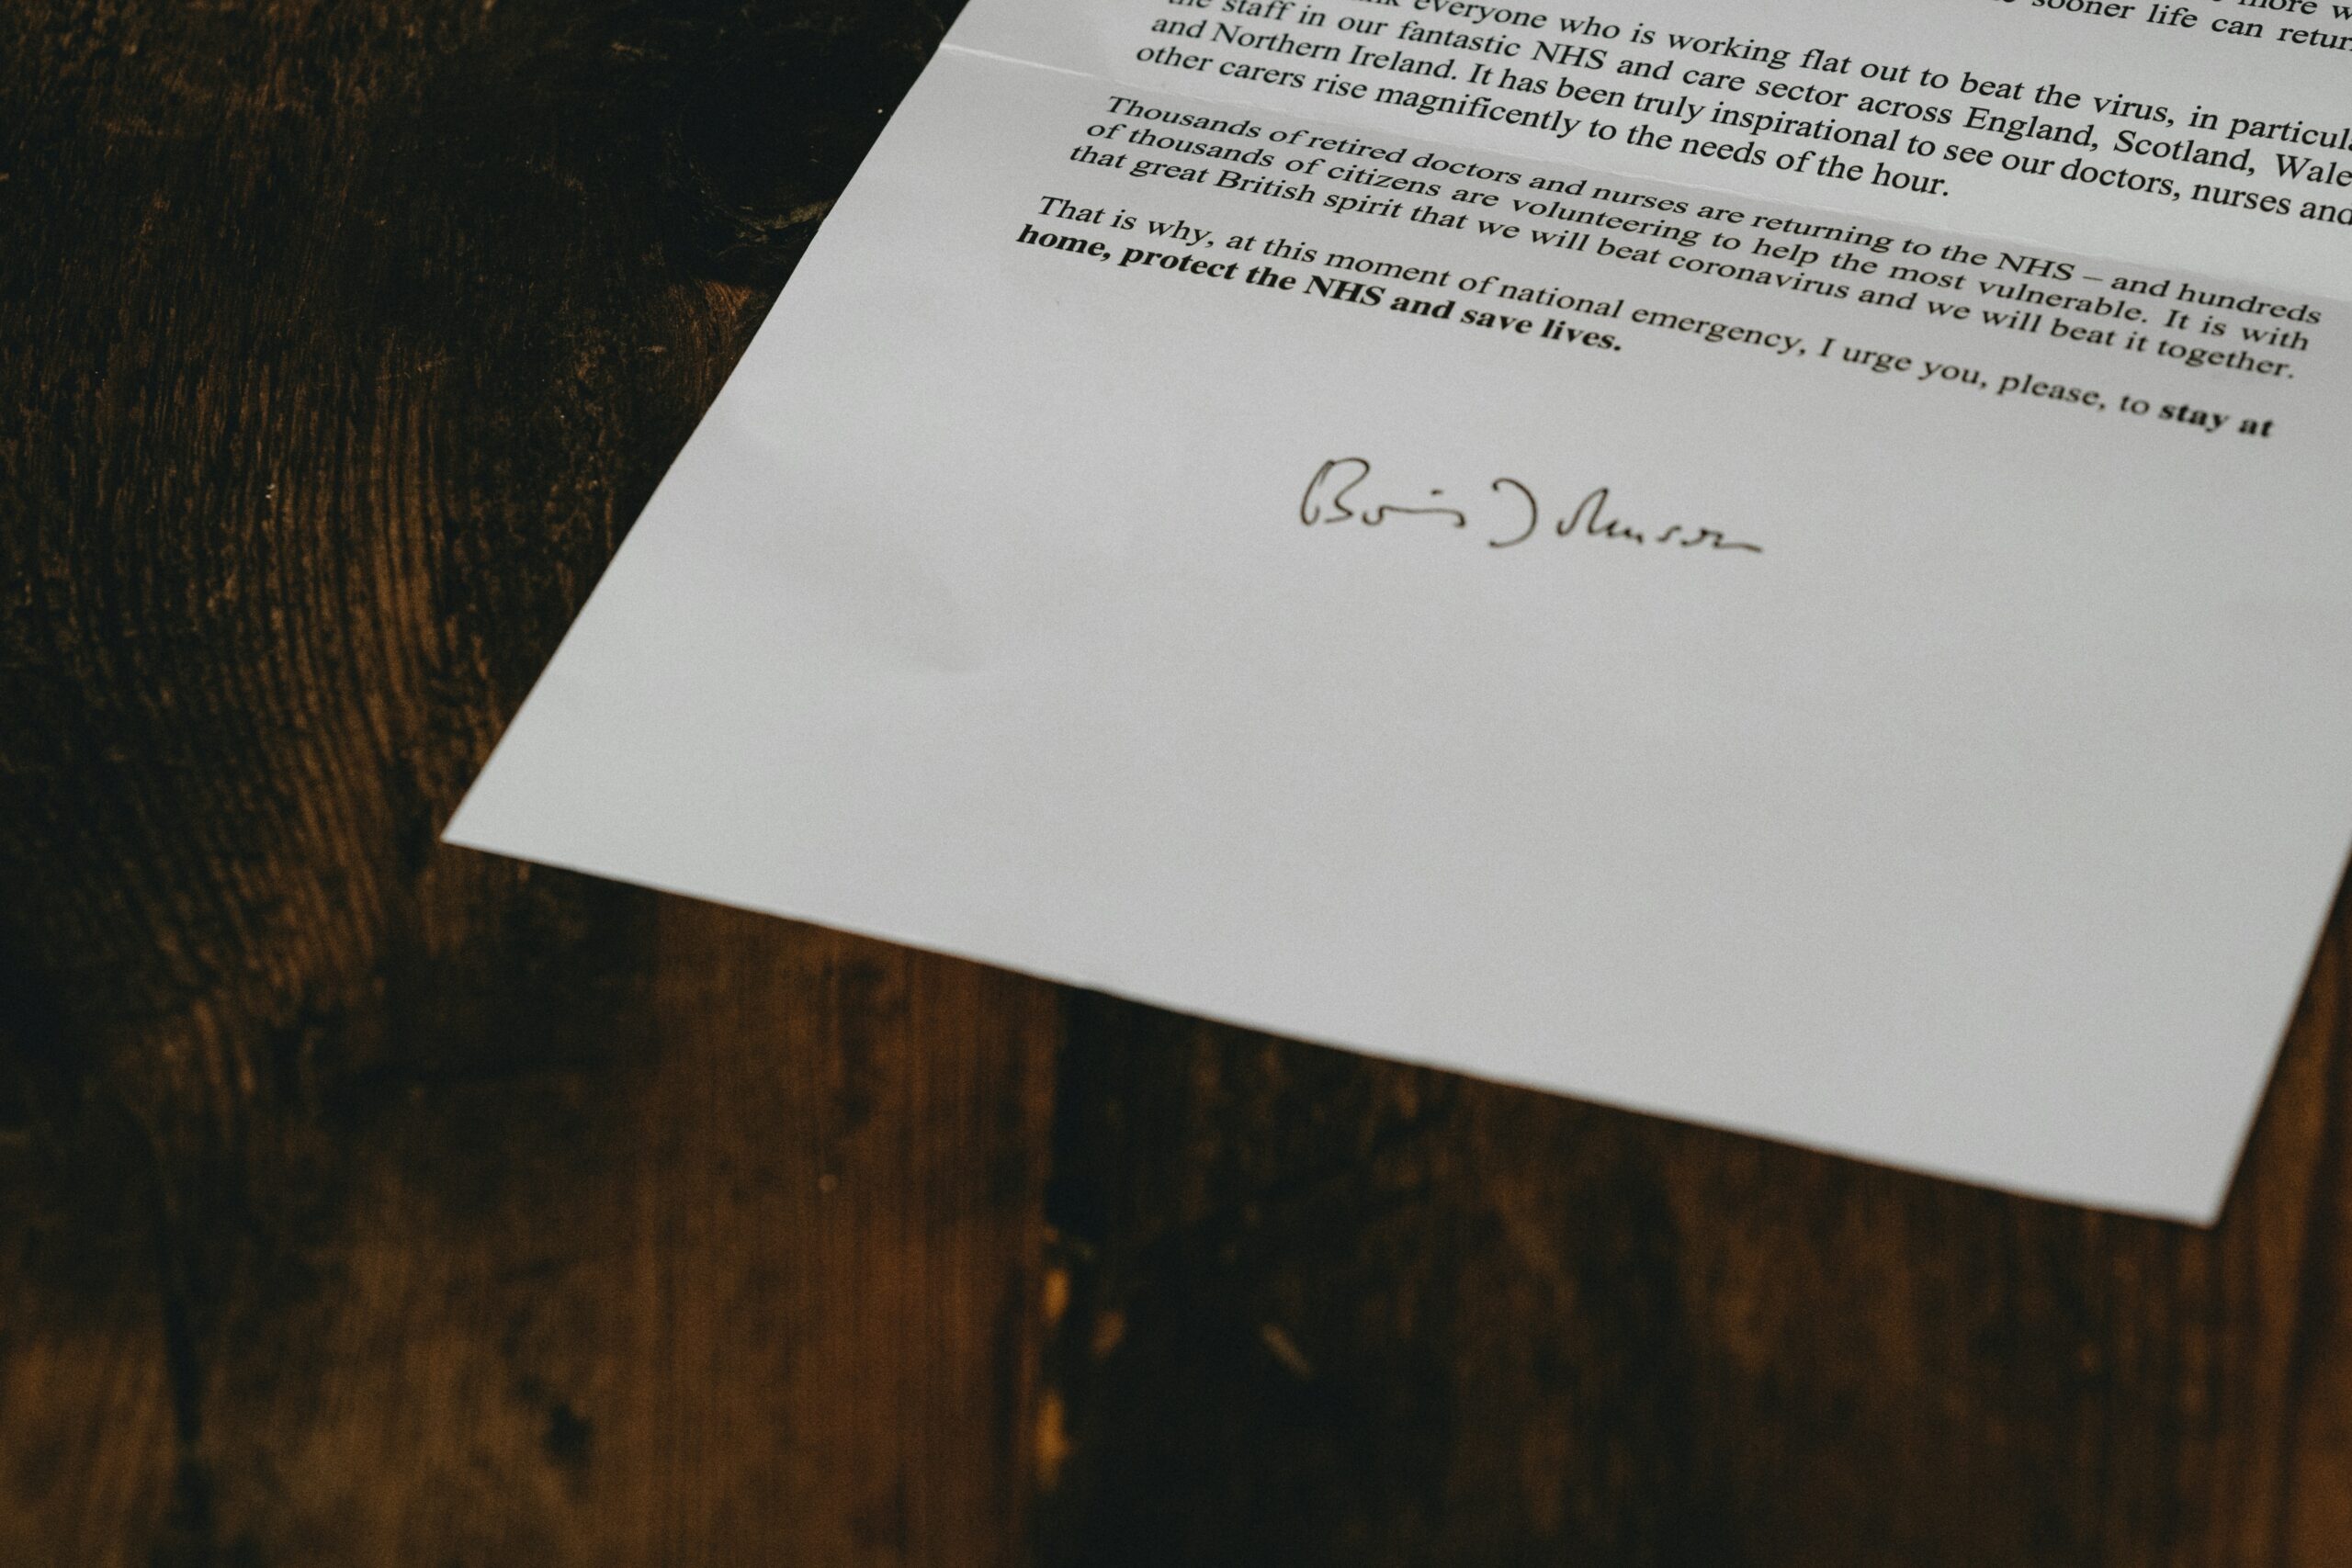 more
sooner life can return
everyone who is working flat out to beat the virus, in particular
the staff in our fantastic NHS and care sector across England, Scotland, Wales
and Northern Ireland. It has been truly inspirational to see our doctors, nurses and
other carers rise magnificently to the needs of the hour.
Thousands of retired doctors and nurses are returning to the NHS – and hundreds
of thousands of citizens are volunteering to help the most vulnerable. It is with
that great British spirit that we will beat coronavirus and we will beat it together.
That is why, at this moment of national emergency, I urge you, please, to stay at
home, protect the NHS and save lives.
Boris Johnson